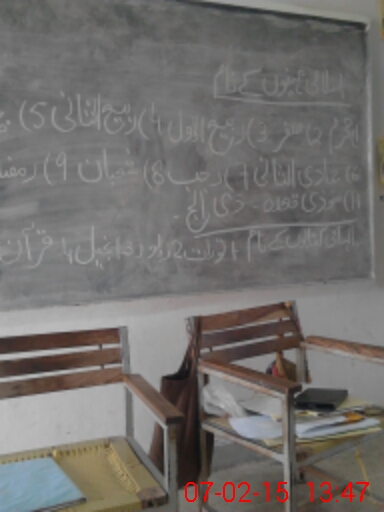 اسلامی مہینوں کے نام
1) محرم 2) صفر 3) ربیع الاول 4) ربیع الثانی 5)
6) جمادی الثانی 7) رجب 8) شعبان 9) رمضا
11) ذی قعدہ - ذی الحج
الہامی کتابوں کے نام 1) تورات 2) زبور 3) انجیل 4) قرآن
07-02-15 13:47